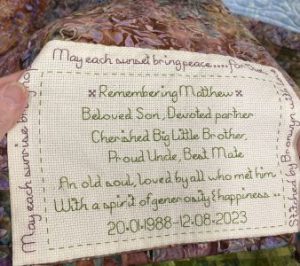 May each sunset bring peace.... for the
✖ Remembering Matthew ✖
Beloved Son, Devoted partner
Cherished Big Little Brother,
Proud Uncle, Best Mate
An old soul, loved by all who met him
With a spirit of generosity & happiness ..
20-01-1988-12-08-2023
May each sunrise bring
by Bronwyn